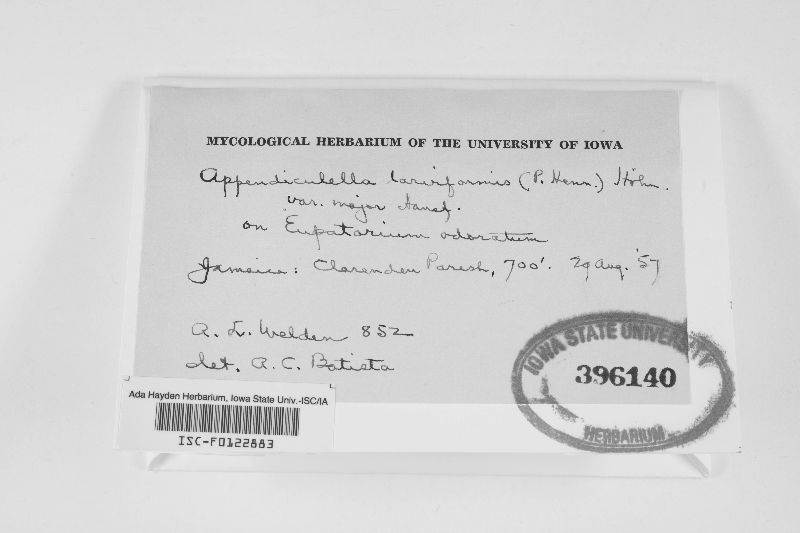 MYCOLOGICAL HERBARIUM OF THE UNIVERSITY OF IOWA
Appendiculella larviformis (P. Henn.) Höhn.
var. major Hansf.
on Eupatorium odoratum
Jamaica: Clarendon Parish, 700'. 29 Aug. '57
A. L. Welden 852
det. A. C. Batista
IOWA STATE UNIVERSITY
396140
HERBARIUM
Ada Hayden Herbarium, Iowa State Univ.-ISC/IA
ISC-F0122883